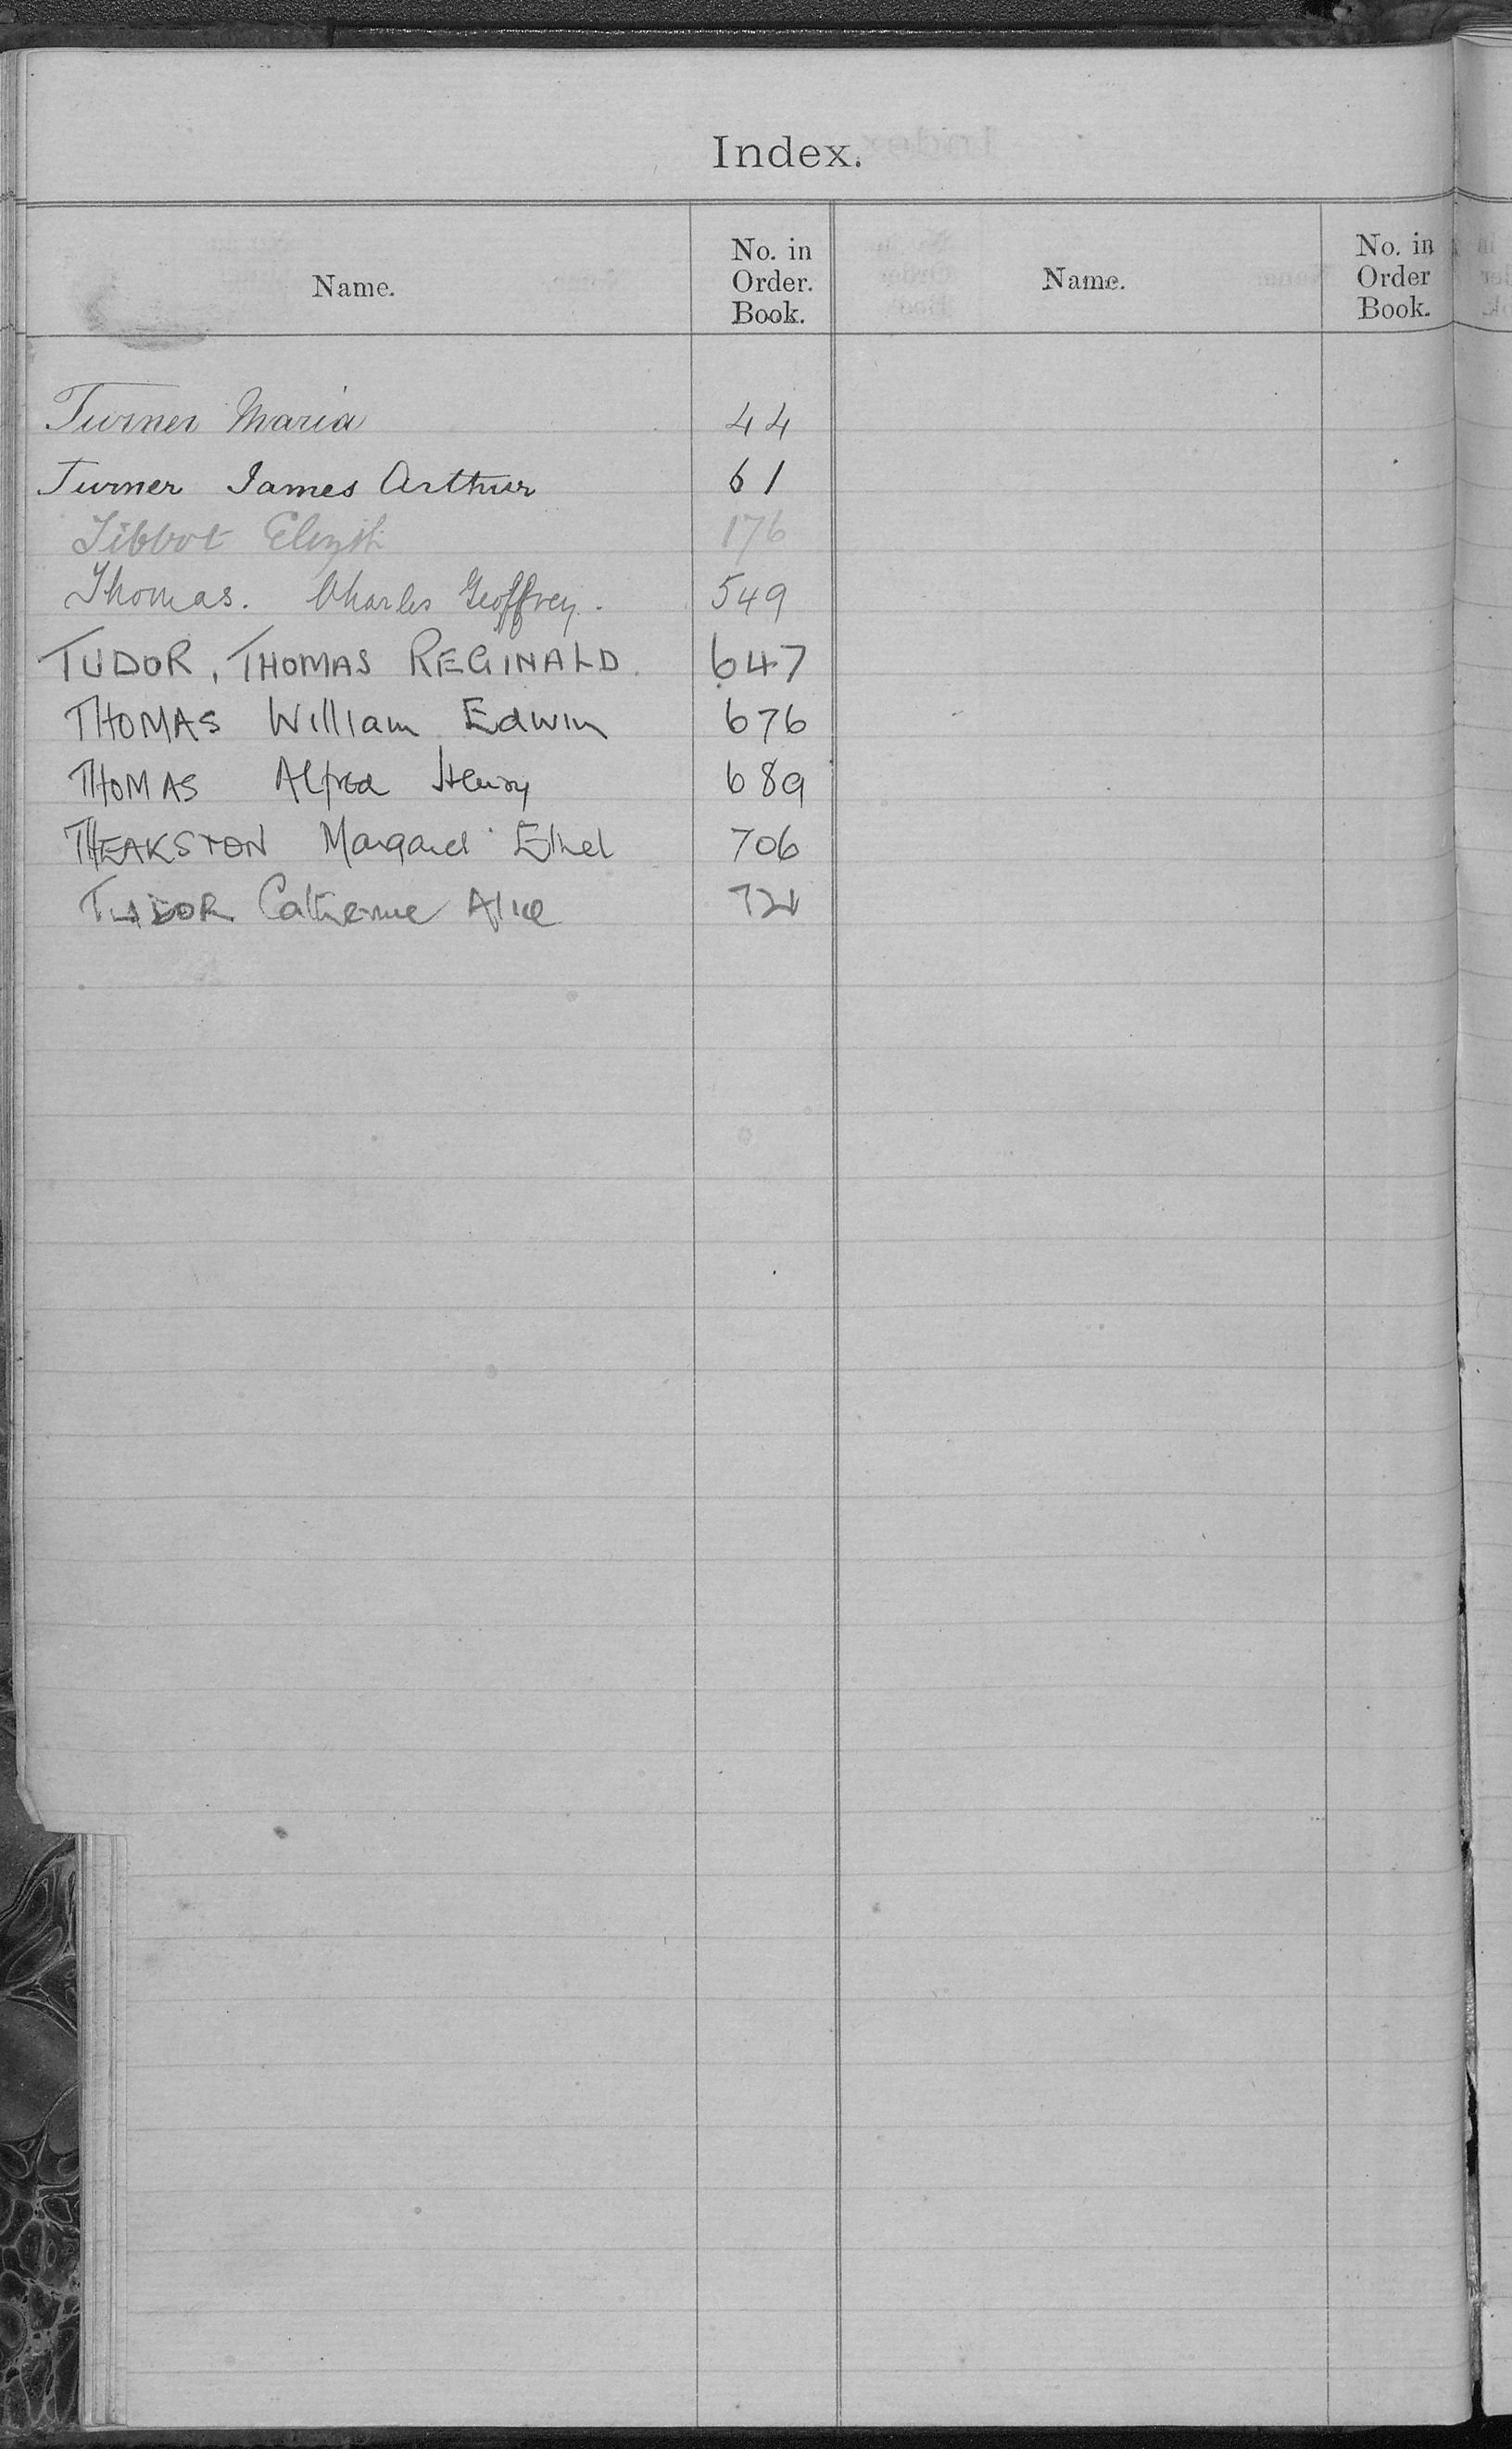 Index.
Name. No. in Order. Book. Name. No. in Order Book.
Turner Maria 44
Turner James Arthur 61
Tibbot Elizth 176
Thomas. Charles Geoffrey. 549
TUDOR, THOMAS REGINALD. 647
THOMAS William Edwin 676
THOMAS Alfred Henry 689
THEAKSTON Margaret Ethel 706
TUDOR Catherine Alice